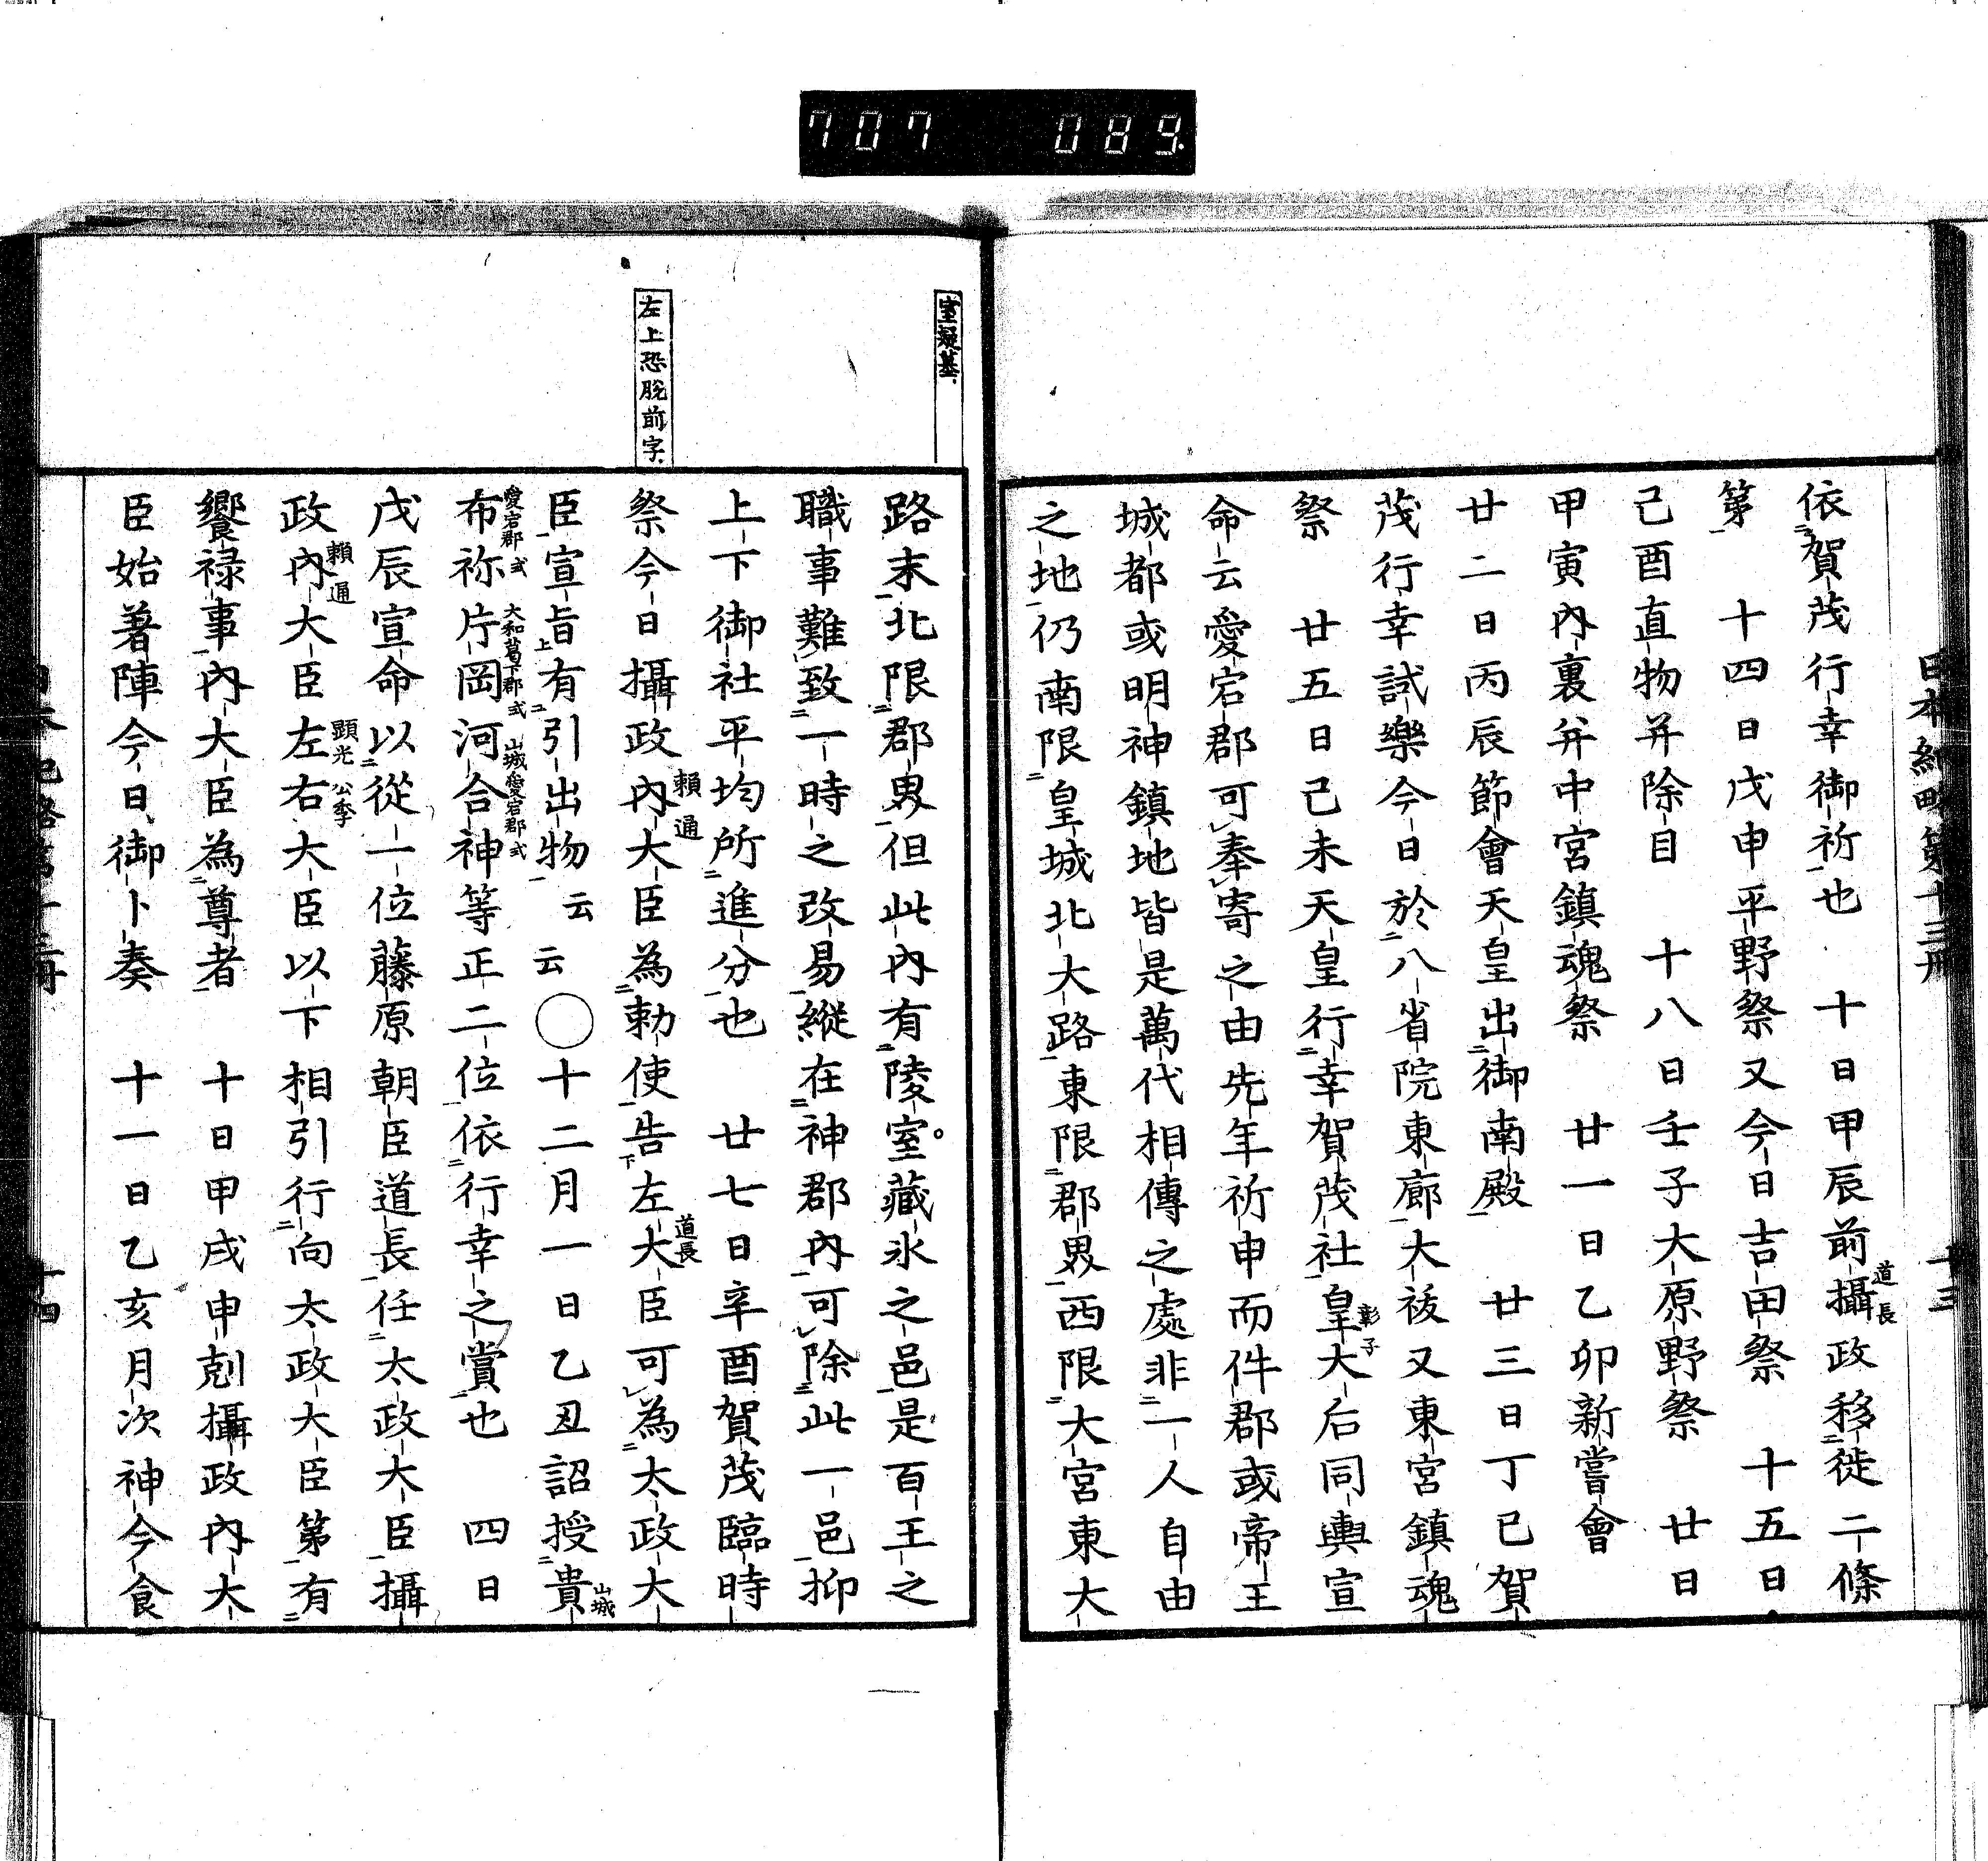 707 089
日本紀略第十三冊 十三
依賀茂行幸御祈也 十日甲辰前攝政移徙二條
道長
第 十四日戊申平野祭又今日吉田祭 十五日
己酉直物并除目 十八日壬子大原野祭 廿日
甲寅內裏并中宮鎮魂祭 廿一日乙卯新嘗會
廿二日丙辰節會天皇出御南殿 廿三日丁巳賀
茂行幸試樂今日於八省院東廊大祓又東宮鎮魂
祭 廿五日己未天皇行幸賀茂社皇大后同輿宣
彰子
命云愛宕郡可奉寄之由先年祈申而件郡或帝王
城都或明神鎮地皆是萬代相傳之處非一人自由
之地仍南限皇城北大路東限郡界西限大宮東大
室疑墓
路末北限郡界但此內有陵室藏氷之邑是百王之
職事難致一時之改易縱在神郡內可除此一邑抑
上下御社平均所進分也 廿七日辛酉賀茂臨時
左上恐脫前字
祭今日攝政內大臣為勅使告左大臣可為太政大
賴通
道長
臣宣旨有引出物云云○十二月一日乙丑詔授貴
山城
愛宕郡式 大和葛下郡式 山城愛宕郡式
布祢片岡河合神等正二位依行幸之賞也 四日
戊辰宣命以從一位藤原朝臣道長任太政大臣攝
政內大臣左右大臣以下相引行向太政大臣第有
賴通
顕光 公季
饗祿事內大臣為尊者 十日甲戌申剋攝政內大
臣始著陣今日御卜奏 十一日乙亥月次神今食